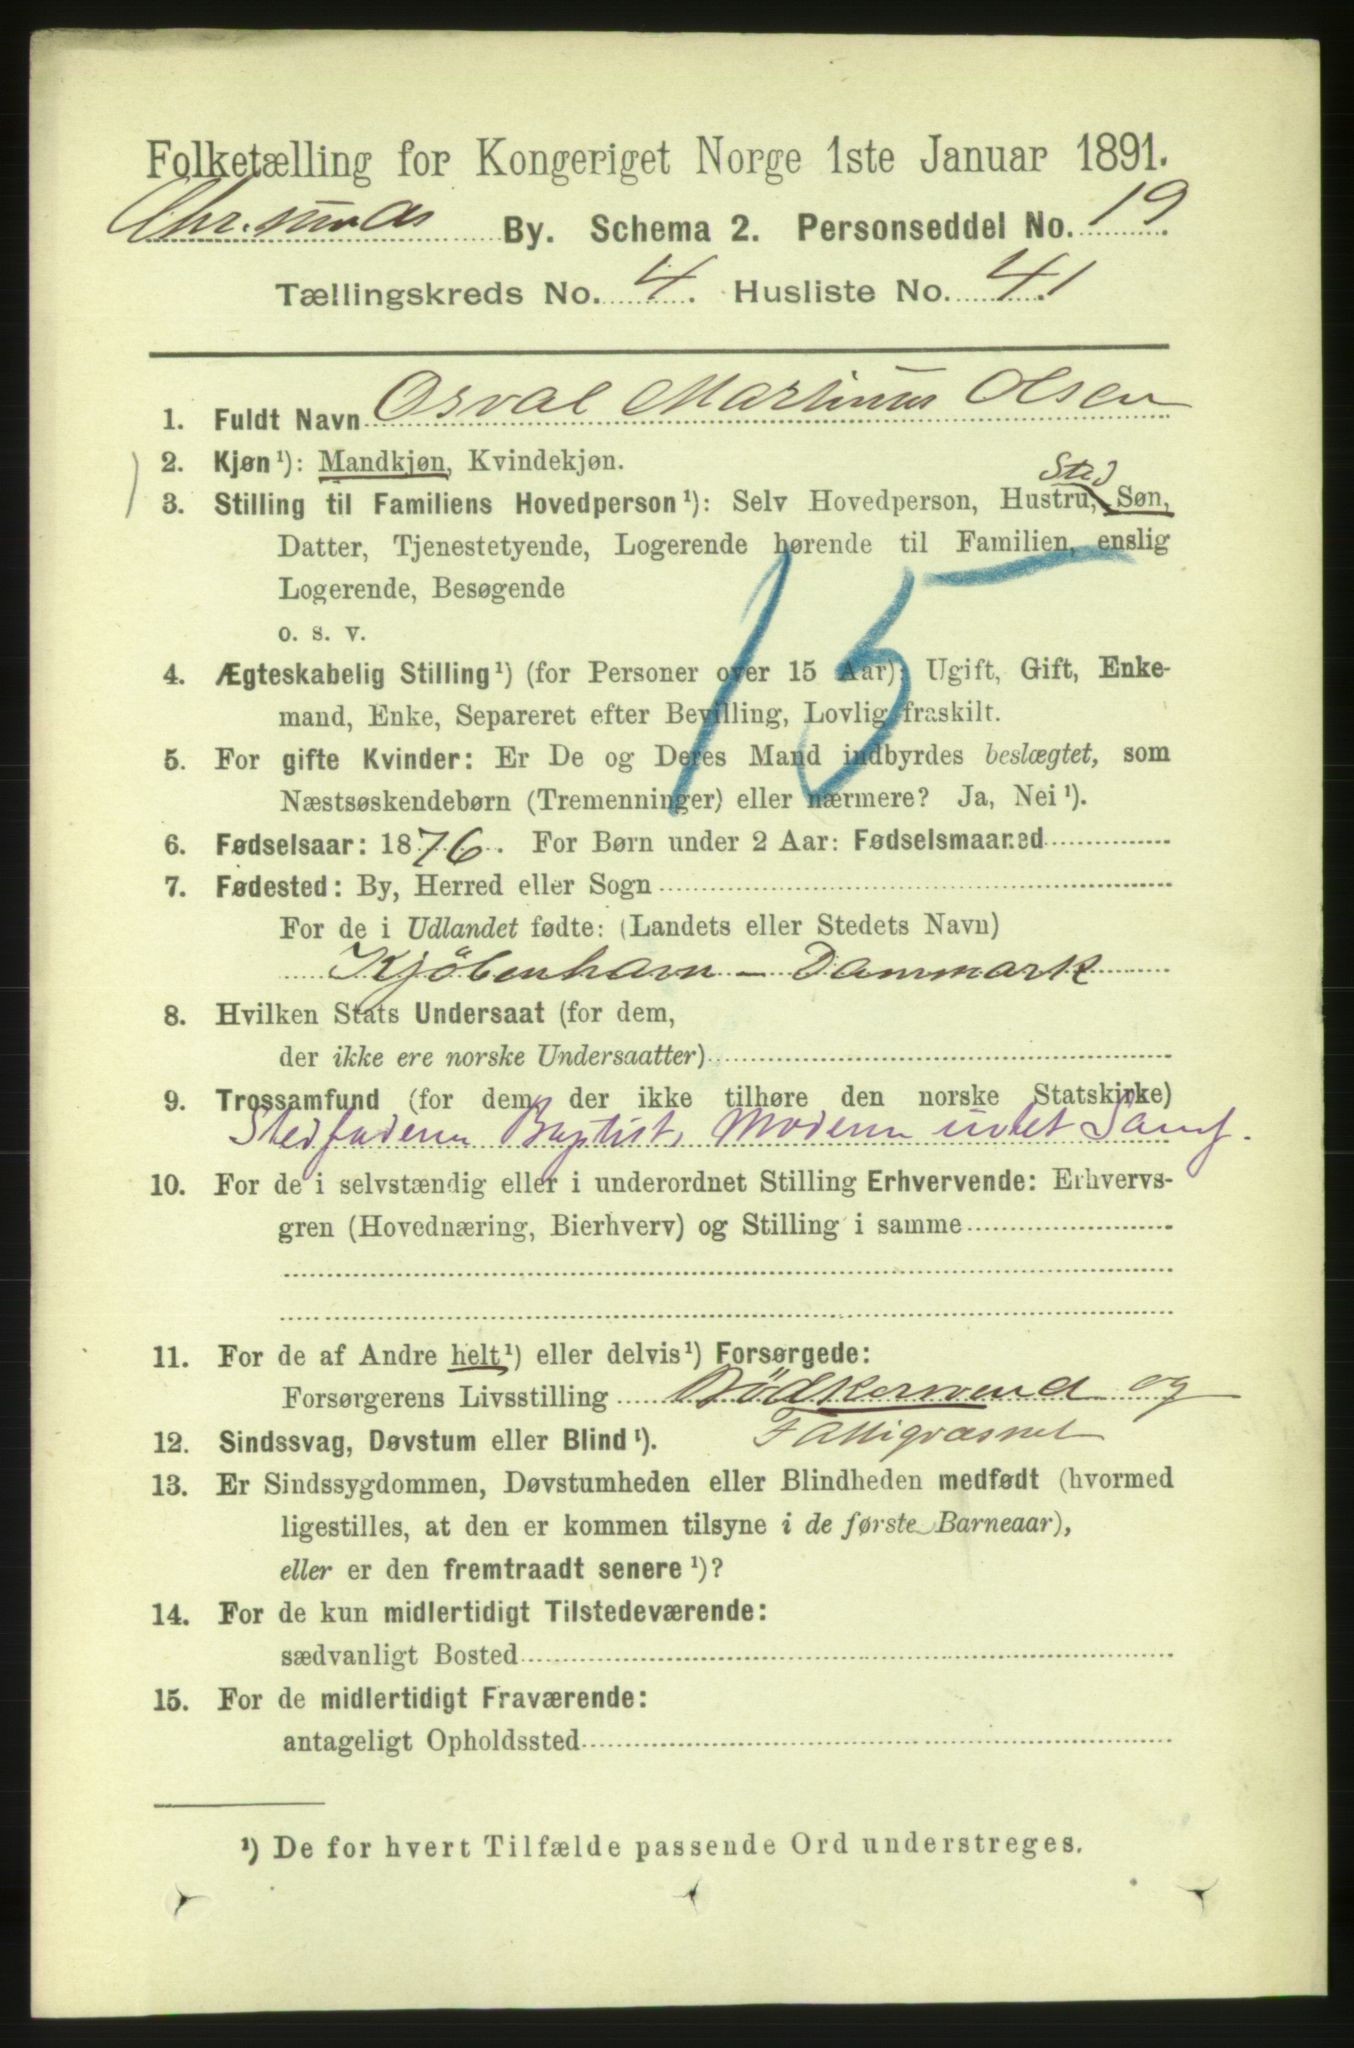 Folketælling for Kongeriget Norge 1ste Januar 1891.
By. Schema 2. Personseddel No. 19
Tællingskreds No. 4. Husliste No. 41
1. Fuldt Navn Osval Martinus Olsen
2. Kjøn¹): Mandkjøn, Kvindekjøn.
Sted
3. Stilling til Familiens Hovedperson¹): Selv Hovedperson, Hustru, Søn,
Datter, Tjenestetyende, Logerende hørende til Familien, enslig
Logerende, Besøgende
o. s. v.
15
4. Ægteskabelig Stilling¹) (for Personer over 15 Aar): Ugift, Gift, Enke-
mand, Enke, Separeret efter Bevilling, Lovlig fraskilt.
5. For gifte Kvinder: Er De og Deres Mand indbyrdes beslægtet, som
Næstsøskendebørn (Tremenninger) eller nærmere? Ja, Nei¹).
6. Fødselsaar: 1876. For Børn under 2 Aar: Fødselsmaaned
7. Fødested: By, Herred eller Sogn
For de i Udlandet fødte: (Landets eller Stedets Navn)
Kjöbenhavn - Danmark
8. Hvilken Stats Undersaat (for dem,
der ikke ere norske Undersaatter)
9. Trossamfund (for dem, der ikke tilhøre den norske Statskirke)
Stedfaderen Baptist, Moderen intet Samf.
10. For de i selvstændig eller i underordnet Stilling Erhvervende: Erhvervs-
gren (Hovednæring, Bierhverv) og Stilling i samme
11. For de af Andre helt¹) eller delvis¹) Forsørgede:
Forsørgerens Livsstilling Bödkersvend og
Fattigvæsnet
12. Sindssvag, Døvstum eller Blind¹).
13. Er Sindssygdommen, Døvstumheden eller Blindheden medfødt (hvormed
ligestilles, at den er kommen tilsyne i de første Barneaar),
eller er den fremtraadt senere¹)?
14. For de kun midlertidigt Tilstedeværende:
sædvanligt Bosted
15. For de midlertidigt Fraværende:
antageligt Opholdssted
¹) De for hvert Tilfælde passende Ord understreges.